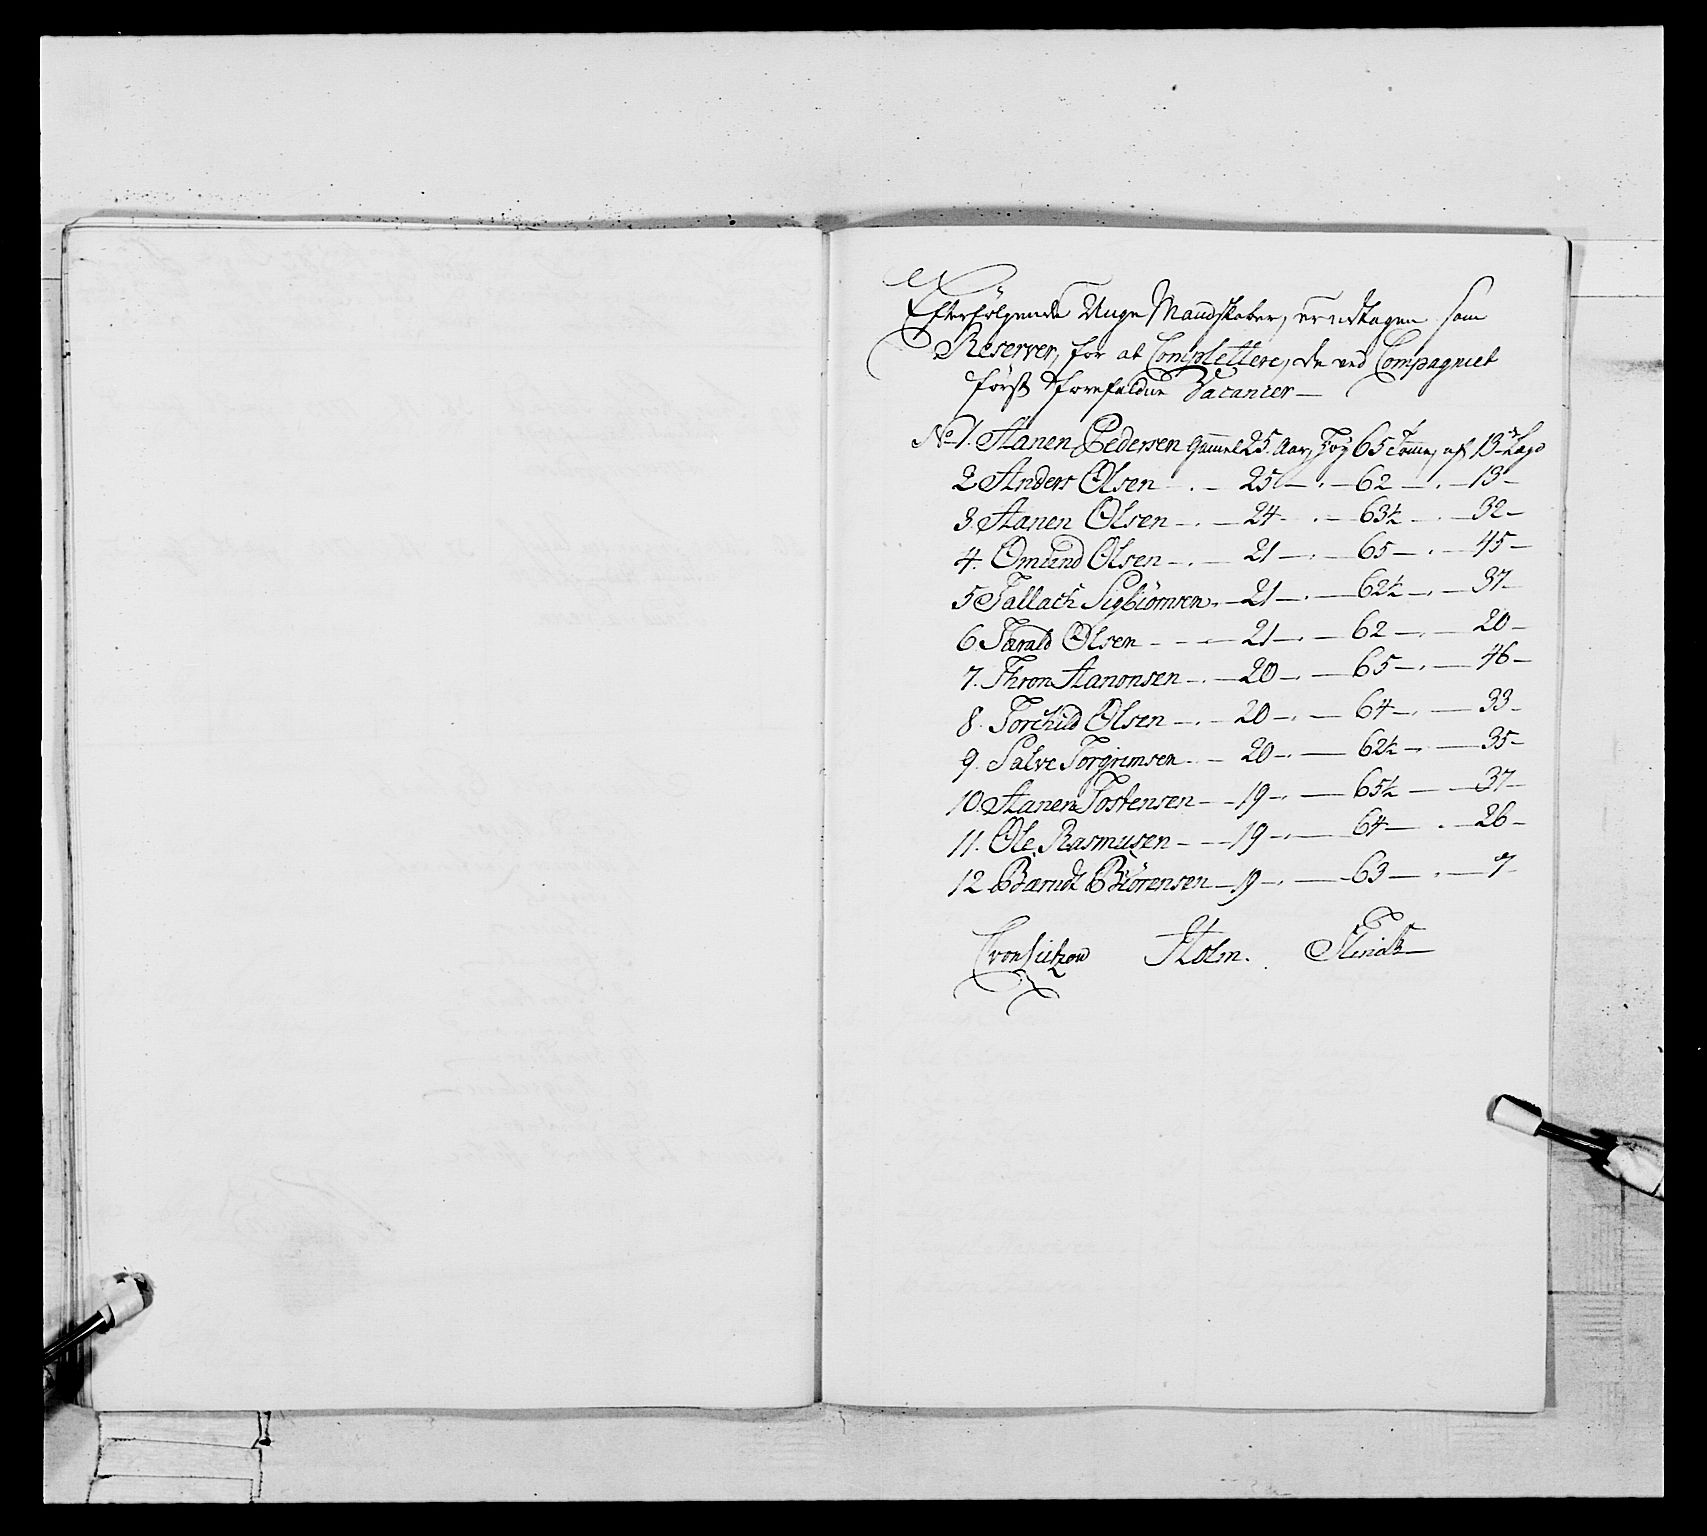 Efterfölgende Unge Mandskaber, er udtagen som
Reserver, for at Complettere, de ved Compagniet
först forefaldne Vacancer —
No 1. Hanen Pedersen gammel 25 Aar, Höy 65 Tomme, af 13 de Lægd
2 Anders Olsen - . - 25 - . - 62 - . - 13 -
3. Hanen Olsen - . - 24 - . - 63½ - . - 32 -
4. Omund Olsen - . - 21 - . - 65 - . - 45 -
5 Tallach Sigbiörnsen - 21 - . - 62½ - . - 37 -
6 Tarald Olsen - - - 21 - . - 62 - . - 20 -
7. Thron Hanonsen - . - 20 - . - 65 - . - 46 -
8. Torchild Olsen - . - 20 - . - 64 - . - 33 -
9. Salve Torgrimsen . - 20 - . - 62½ - . - 35 -
10. Hanen Tostensen - - 19 - . - 65½ - . - 37 -
11. Ole Rasmusen - - 19 - . - 64 - . - 26 -
12 Barndt Biörensen - 19 - . - 63 - . - 7 -
Holm.